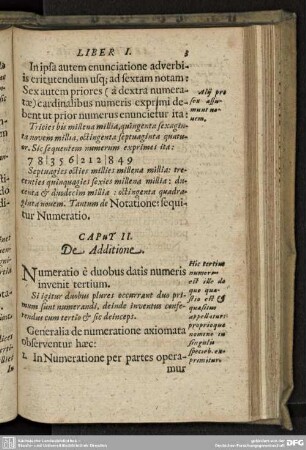 LIBER I. 3
In ipsa autem enunciatione adverbi-
is erit utendum usq; ad sextam notam:
Sex autem priores (à dextrâ numera-
tæ) cardinalibus numeris exprimi de-
bent ut prior numerus enuncietur ita:
Tricies bis millena millia, quingenta sexagin-
ta novem millia, octingenta septuaginta quatu-
or. Sic sequentem numerum exprimes ita:
7 8|3 5 6|2 1 2|8 4 9
Septuagies octies millies millena millia: tre-
centies quinquagies sexies millena millia: du-
centa & duodecim millia: octingenta quadra-
ginta novem. Tantum de Notatione: sequi-
tur Numeratio.
Alij pro
sex assu-
munt no-
vem.
CAPUT II.
De Additione.
Numeratio è duobus datis numeris
invenit tertium.
Si igitur duobus plures occurrant duo pri-
mum sunt numerandi, deinde inventus confe-
rendus cum tertio & sic deinceps.
Generalia de numeratione axiomata
observentur hæc:
1. In Numeratione per partes opera-
mur
Hic tertius
numerus
est ille de
quo quæ-
stio est &
quæsitus
appellatur:
proprioque
nomine in
singulis
specieb. ex-
primitur.
Sächsische Landesbibliothek -
Staats- und Universitätsbibliothek Dresden
gefördert von der
Deutschen Forschungsgemeinschaft
DFG